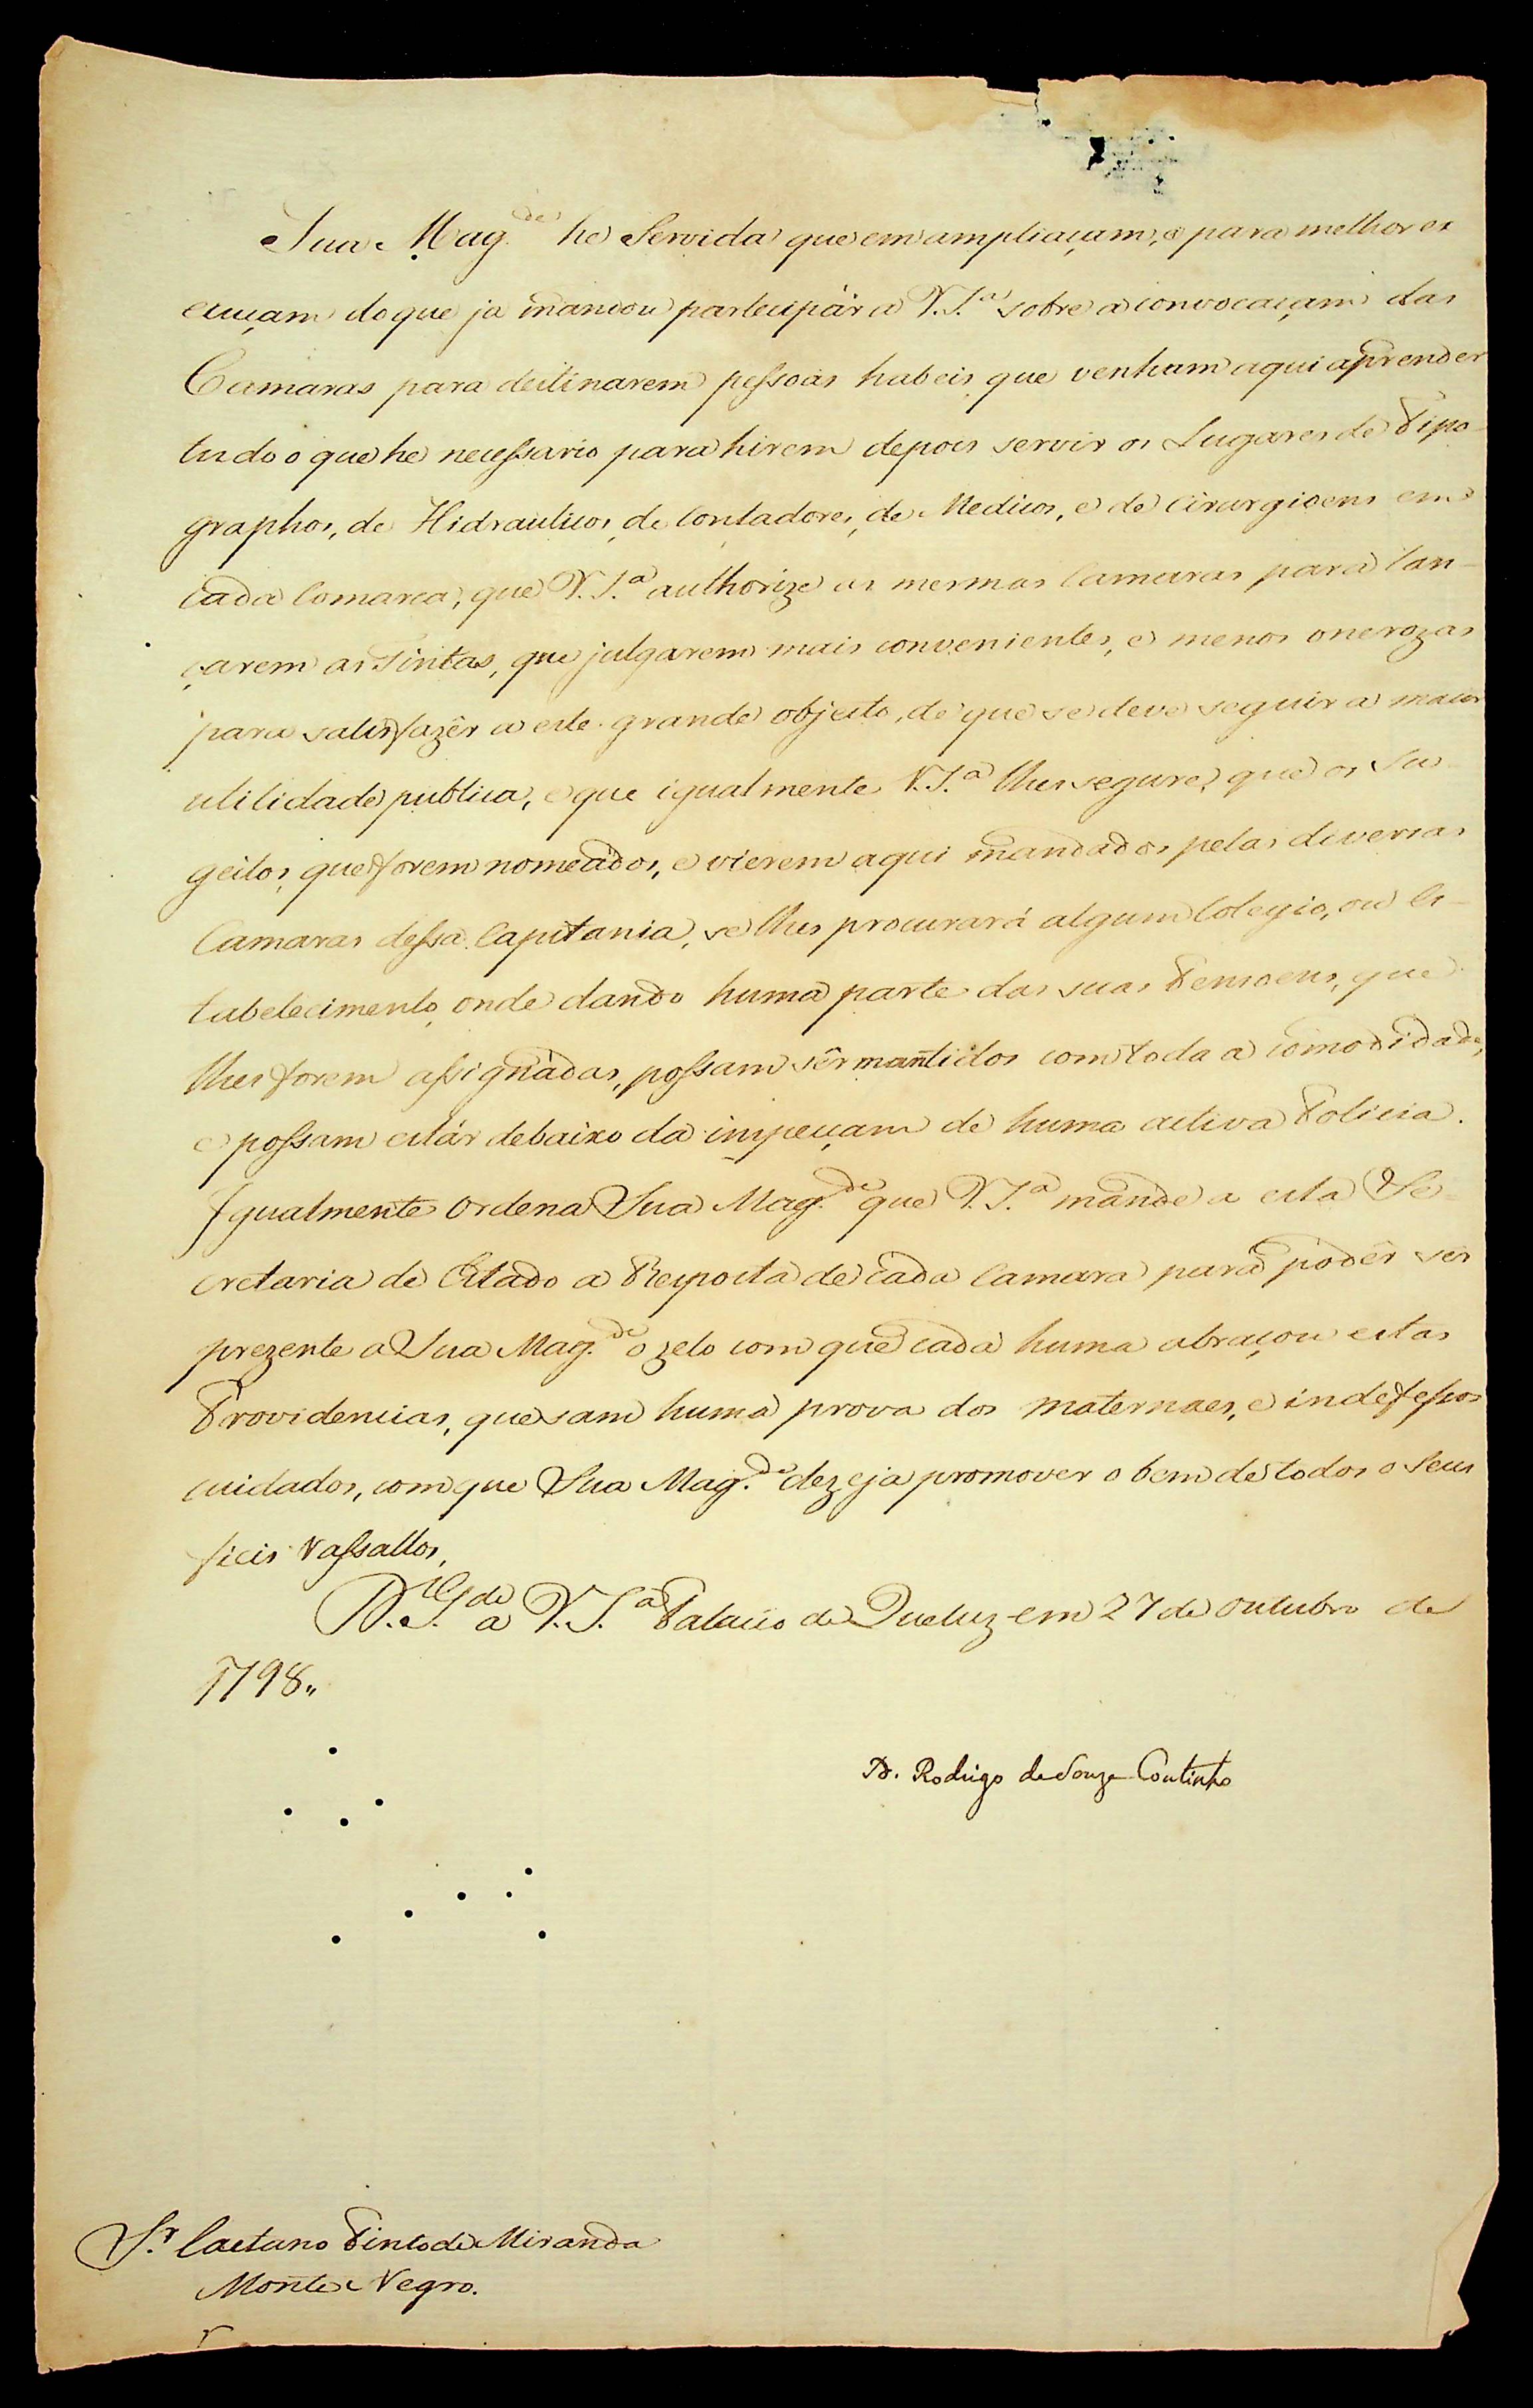 Sua Mag.de he Servida que em ampliaçam, e para melhor ex
ecuçam do que ja mandou partecipár a V.S.a sobre a convocaçam das
Camaras para destinarem pessoas habeis que venham aqui aprender
tudo o que he necessario para hirem depois servir os Lugares de Tipo-
graphos, de Hidraulicos, de Contadores, de Medicos, e de Cirurgioens em
cada Comarca, que V.S.a authorize as mesmas Camaras para lan-
çarem as Fintas, que julgarem mais convenientes, e menos onerozas
para satisfazêr a este grande objecto, de que se deve seguir a maior
utilidade publica, e que igualmente V.S.a lhes segure, que os Su-
geitos, que forem nomeados, e vierem aqui mandados pelas diversas
Camaras dessa Capitania, se lhes procurará algum Colegio, ou Es-
tabelecimento, onde dando huma parte das suas Pensoens, que
lhes forem assignadas, possam sêr mantidos com toda a comodidade,
e possam estár debaixo da inspecçam de huma activa Policia.
Igualmente Ordena Sua Mag.de que V.S.a mande a esta Se-
cretaria de Estado a Resposta de cada Camara para podêr ser
prezente a Sua Mag.de o zelo com que cada huma abraçou estas
Providencias, que sam huma prova dos maternaes, e indefessos
cuidados, com que Sua Mag.de dezeja promover o bem de todos o seus
fieis Vassallos.
D.s G.de a V.S.a Palacio de Queluz em 27 de Outubro de
1798,,
D. Rodrigo de Souza Coutinho
S.r Caetano Pinto de Miranda
Monte Negro.